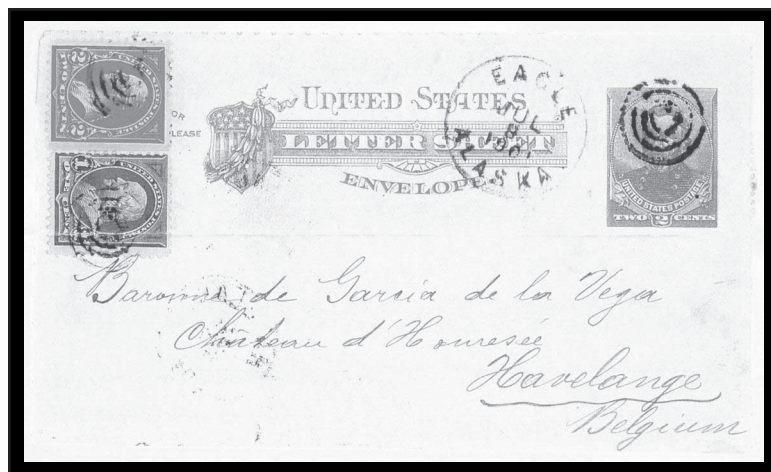 UNITED STATES
LETTER SHEET
ENVELOPE
EAGLE
JUL
8
ALASKA
OR
LEASE
UNITED STATES POSTAGE
TWO 2 CENTS
2 2
TWO CENTS
1
ONE CENT
Baronne de Garcia de la Vega
Château d'Houresée
Havelange
Belgium